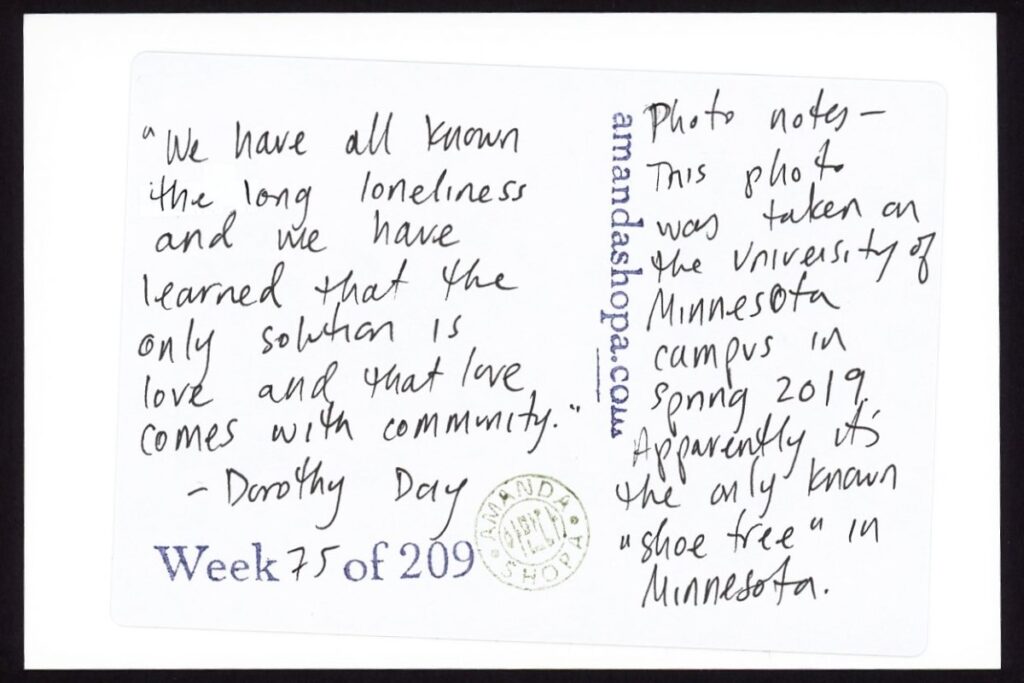 "We have all known
the long loneliness
and we have
learned that the
only solution is
love and that love
comes with community."
- Dorothy Day
Week 75 of 209
AMANDA
SHOPA
amandashopa.com
Photo notes -
This photo
was taken on
the University of
Minnesota
campus in
spring 2019.
Apparently it's
the only known
"shoe tree" in
Minnesota.